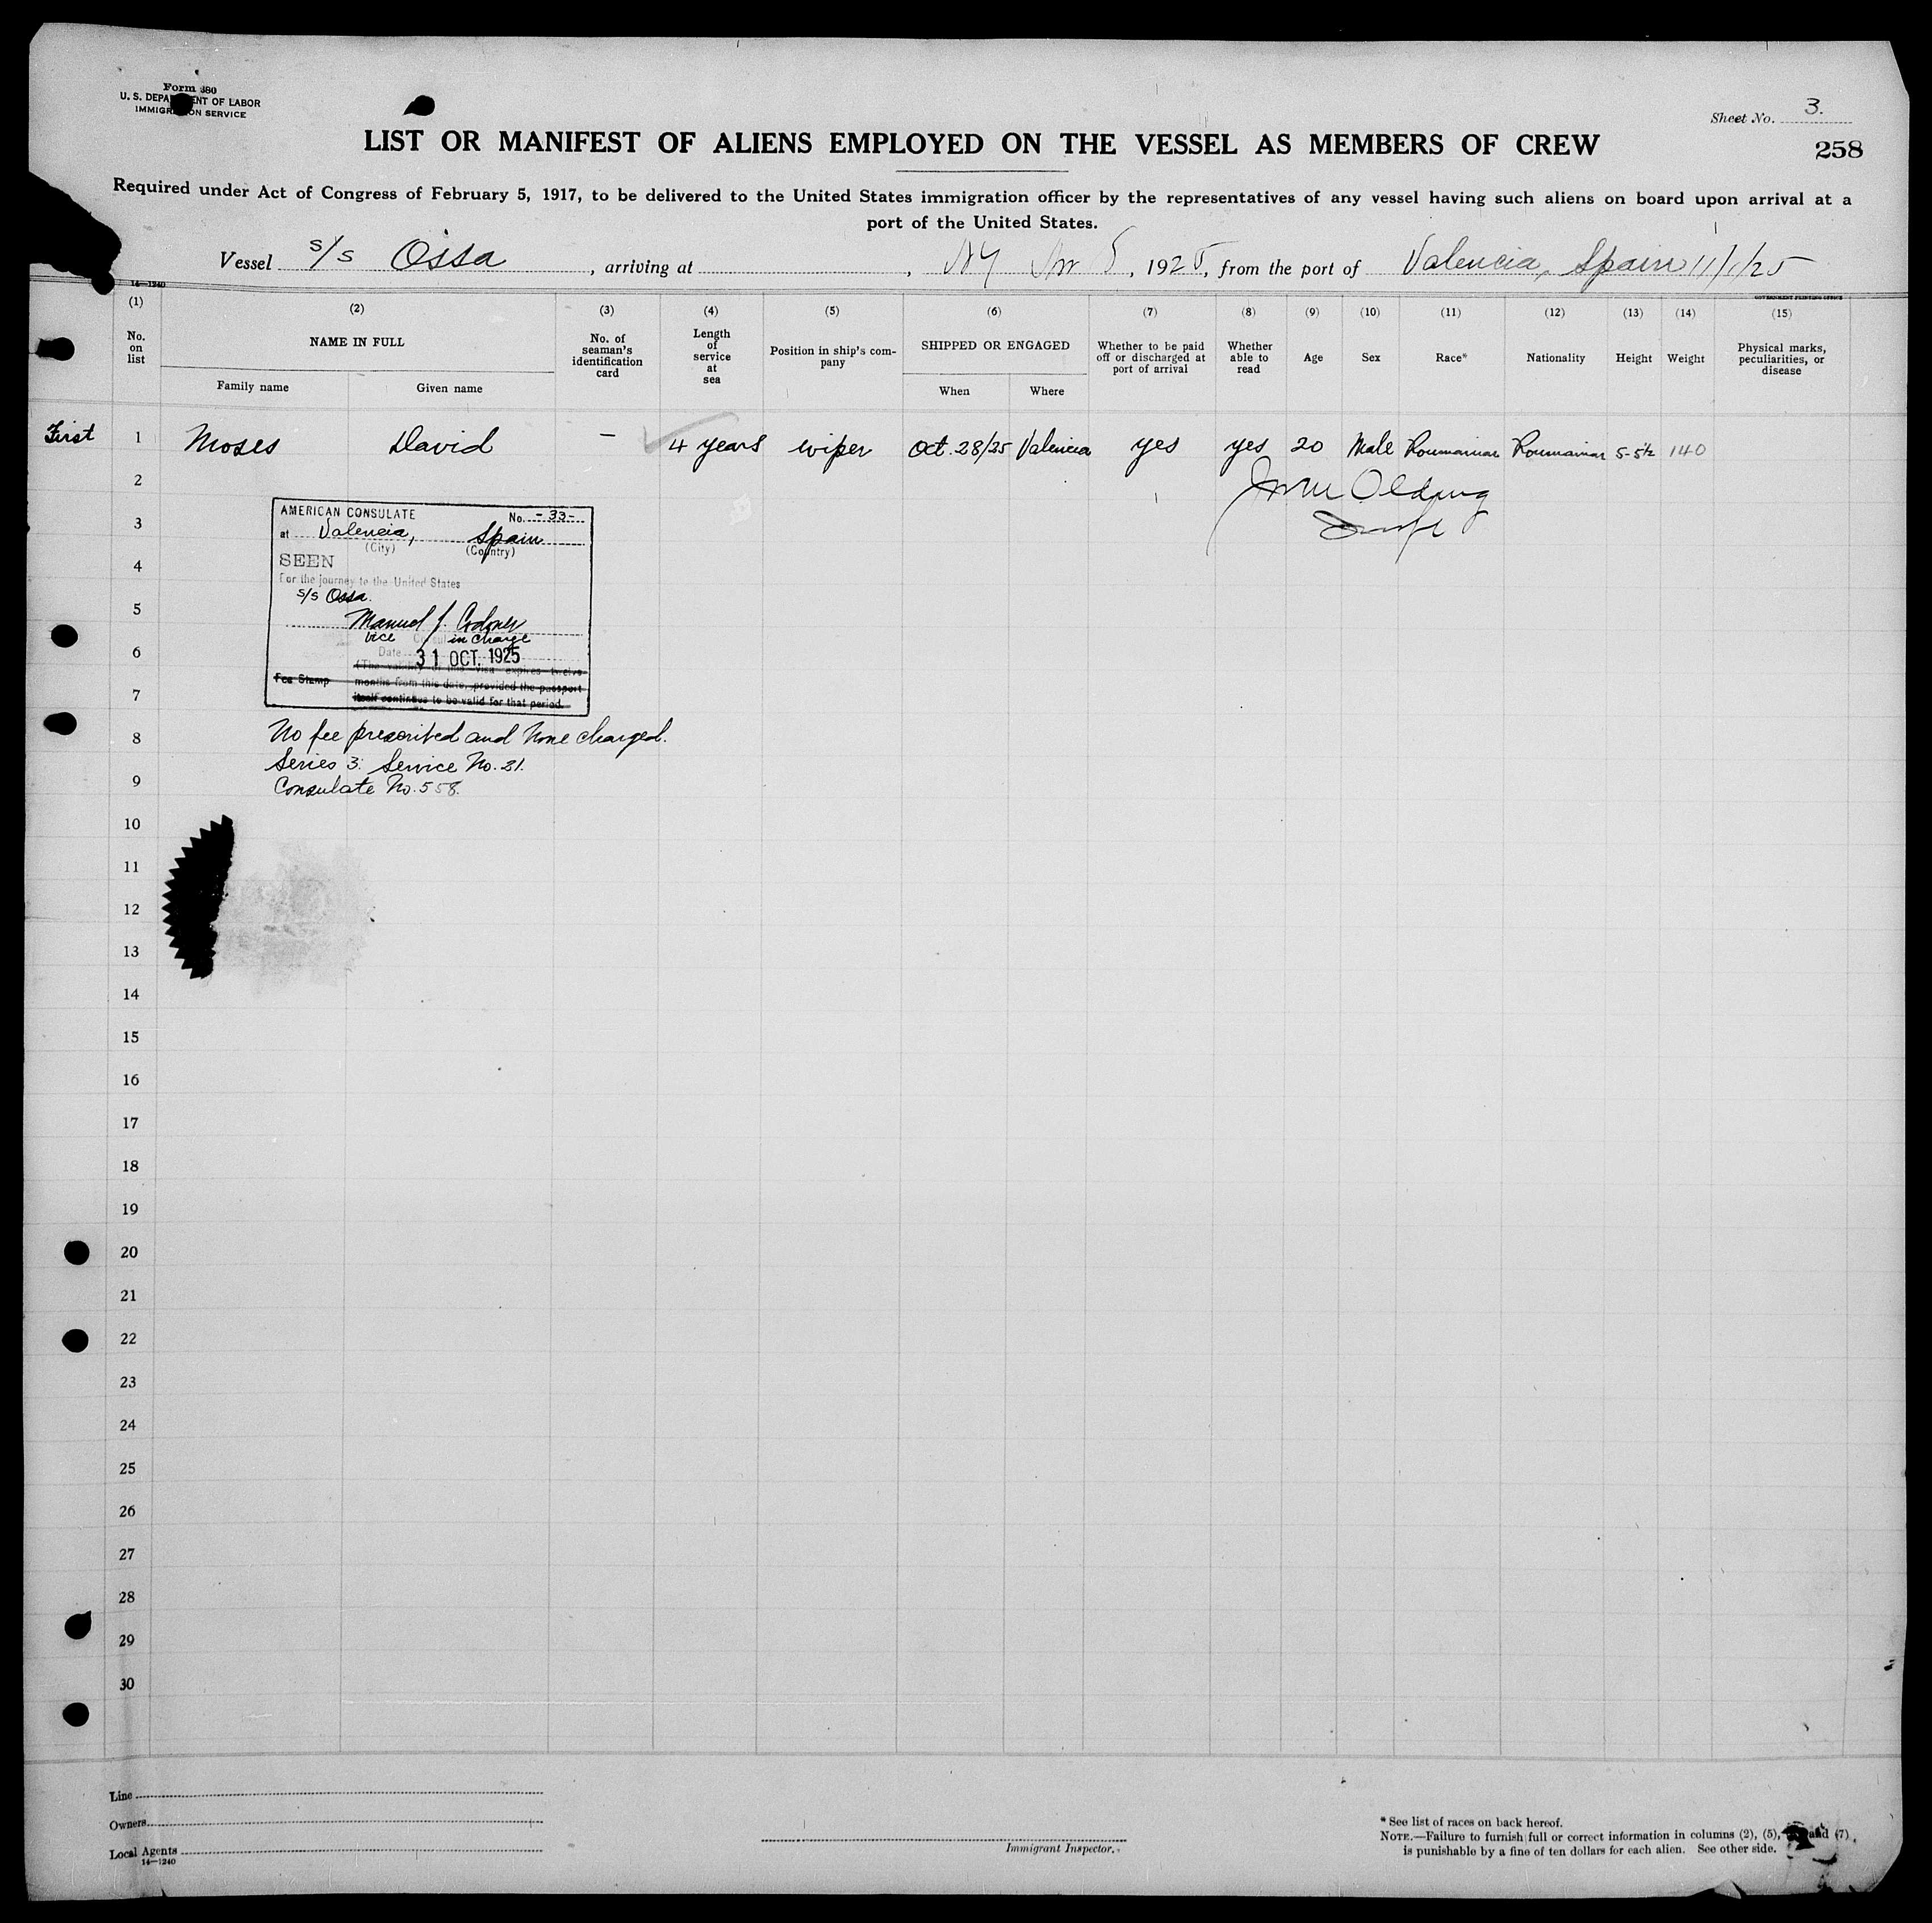 Form 680
U. S. DEPARTMENT OF LABOR
IMMIGRATION SERVICE
Sheet No. 3.
LIST OR MANIFEST OF ALIENS EMPLOYED ON THE VESSEL AS MEMBERS OF CREW
258
Required under Act of Congress of February 5, 1917, to be delivered to the United States immigration officer by the representatives of any vessel having such aliens on board upon arrival at a
port of the United States.
Vessel s/s Ossa, arriving at , NY 1925, from the port of Valencia, Spain 11/1/25
14—1240
GOVERNMENT PRINTING OFFICE
(1) (2) (3) (4) (5) (6) (7) (8) (9) (10) (11) (12) (13) (14) (15)
No. on list NAME IN FULL No. of seaman's identification card Length of service at sea Position in ship's company SHIPPED OR ENGAGED Whether to be paid off or discharged at port of arrival Whether able to read Age Sex Race* Nationality Height Weight Physical marks, peculiarities, or disease
Family name Given name When Where
First 1 Moses David – 4 years wiper Oct. 28/25 Valencia yes yes 20 Male Roumanian Roumanian 5-5½ 140
2
3
4
5
6
7
8
9
10
11
12
13
14
15
16
17
18
19
20
21
22
23
24
25
26
27
28
29
30
AMERICAN CONSULATE No. -33-
at Valencia, Spain
(City) (Country)
SEEN
For the journey to the United States
s/s Ossa.
Manuel J. Codoner
Vice Consul in charge
Date 31 OCT. 1925
(The validity of this visa expires twelve
Fee Stamp months from this date, provided the passport
itself continues to be valid for that period.
No fee prescribed and none charged.
Series 3: Service No. 21.
Consulate No. 558.
Line
Owners
Local Agents
14—1240
Immigrant Inspector.
* See list of races on back hereof.
NOTE.—Failure to furnish full or correct information in columns (2), (5), and (7)
is punishable by a fine of ten dollars for each alien. See other side.